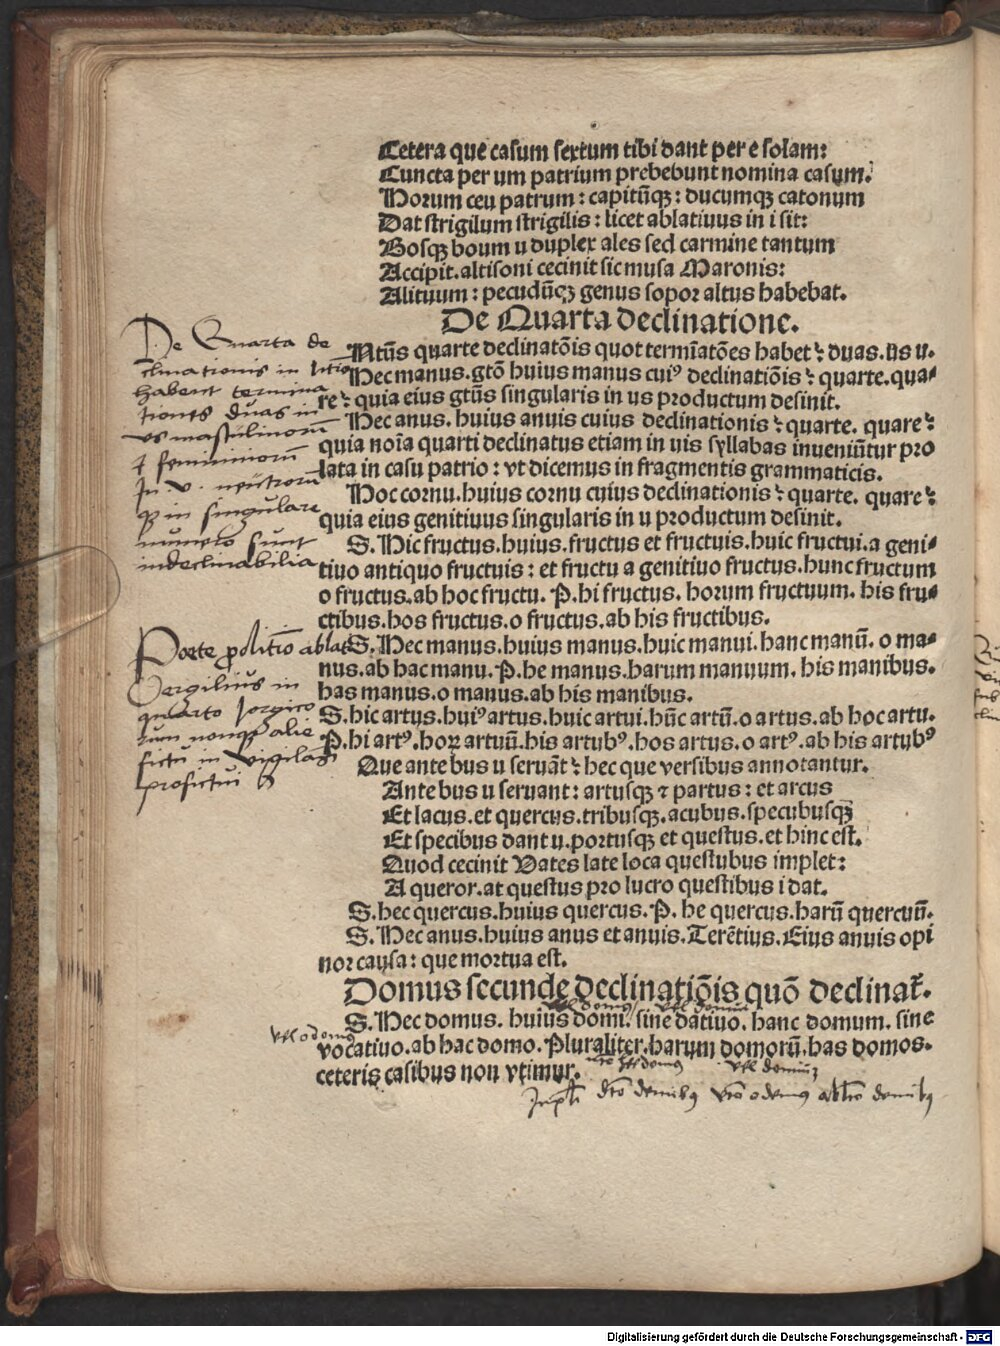 Cetera que casum sextum tibi dant per e solam:
Cuncta per um patrium prebebunt nomina casum.
Horum ceu patrum : capitūqꝫ : ducumqꝫ catonum
Dat strigilum strigilis : licet ablatiuus in i sit:
Bosqꝫ boum u duplex ales sed carmine tantum
Accipit. altisoni cecinit sic musa Maronis:
Alituum : pecudūqꝫ genus sopor altus habebat.
De Quarta declinatione.
Ntūs quarte declinatōis quot termīatōes habet : duas. us u.
Hec manus. gtō huius manus cuiꝰ declinatiōis : quarte. qua⸗
re : quia eius gtūs singularis in us productum desinit.
Hec anus. huius anuis cuius declinationis : quarte. quare :
quia noīa quarti declinatus etiam in uis syllabas inueniūtur pro
lata in casu patrio : vt dicemus in fragmentis grammaticis.
Hoc cornu. huius cornu cuius declinationis : quarte. quare :
quia eius genitiuus singularis in u productum desinit.
S. Hic fructus. huius. fructus et fructuis. huic fructui. a geni⸗
tiuo antiquo fructuis : et fructu a genitiuo fructus. hunc fructum
o fructus. ab hoc fructu. P. hi fructus. horum fructuum. his fru⸗
ctibus. hos fructus. o fructus. ab his fructibus.
S. Hec manus. huius manus. huic manui. hanc manū. o ma⸗
nus. ab hac manu. P. he manus. harum manuum. his manibus.
has manus. o manus. ab his manibus.
S. hic artus. huiꝰ artus. huic artui. hūc artū. o artus. ab hoc artu.
P. hi artꝰ. hoꝝ artuū. his artubꝰ. hos artus. o artꝰ. ab his artubꝰ
Que ante bus u seruāt : hec que versibus annotantur.
Ante bus u seruant : artusqꝫ ⁊ partus : et arcus
Et lacus. et quercus. tribusqꝫ. acubus. specubusqꝫ
Et specibus dant u. portusqꝫ et questus. et hinc est.
Quod cecinit Vates late loca questubus implet:
A queror. at questus pro lucro questibus i dat.
S. hec quercus. huius quercus. P. he quercus. harū quercuū.
S. Hec anus. huius anus et anuis. Terētius. Eius anuis opi
nor causa : que mortua est.
Domus secunde declinatiōis quō declinat̄.
S. Hec domus. huius domi. sine datiuo. hanc domum. sine
vocatiuo. ab hac domo. Pluraliter. harum domorū. has domos.
ceteris casibus non vtimur.
De Quarta de
clinationis in
habent termina
tiones duas in
us masculinorū
⁊ femininorū
In . v . neutrorū
in singulare
numero sunt
indeclinabilia
Poete
Vergilius in
quarto
in vigilas